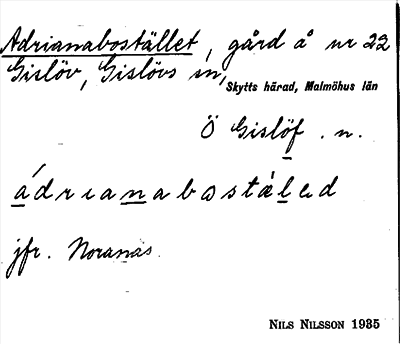 Adrianabostället, gård å nr 22
Gislöv, Gislövs sn,
Skytts härad, Malmöhus län
Ö Gislöf . n.
ádrıanabostäled
jfr. Noranäs.
NILS NILSSON 1935